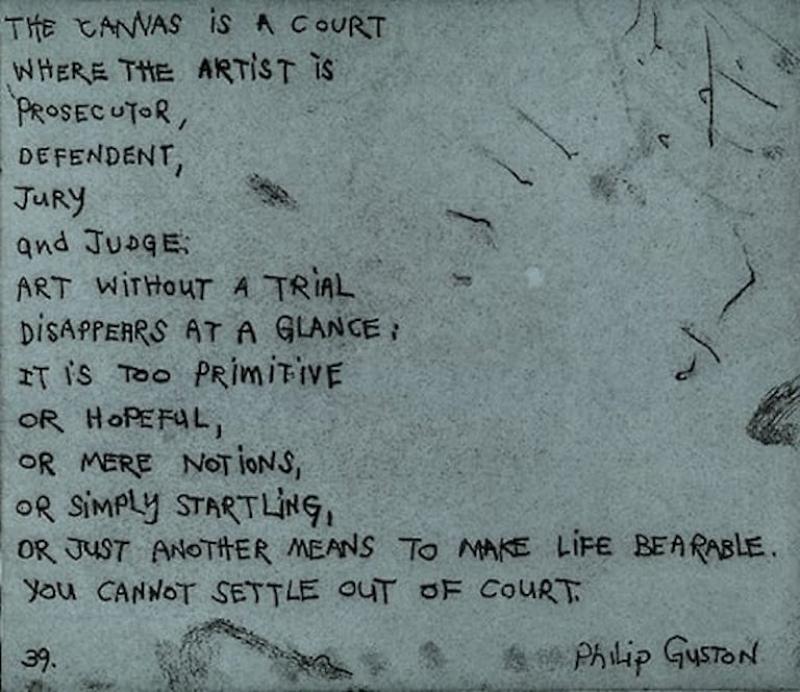 THE CANVAS IS A COURT
WHERE THE ARTIST IS
PROSECUTOR,
DEFENDENT,
JURY
and JUDGE:
ART WITHOUT A TRIAL
DISAPPEARS AT A GLANCE:
IT IS TOO PRIMITIVE
OR HOPEFUL,
OR MERE NOTIONS,
OR SIMPLY STARTLING,
OR JUST ANOTHER MEANS TO MAKE LIFE BEARABLE.
YOU CANNOT SETTLE OUT OF COURT.
39. Philip GUSTON